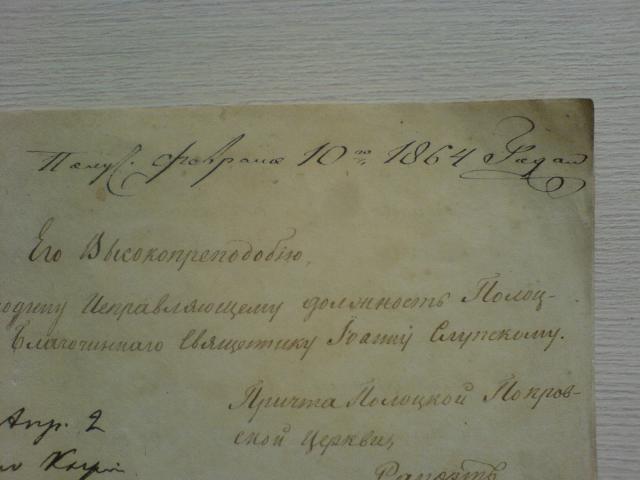 Получ. Февраля 10го 1864 года
Его Высокопреподобію,
Исправляющему должность Полоц-
Благочиннаго Священнику Іоанну Слупскому.
Причта Полоцкой Покров-
ской церкви,
Апр. 2
Рапортъ